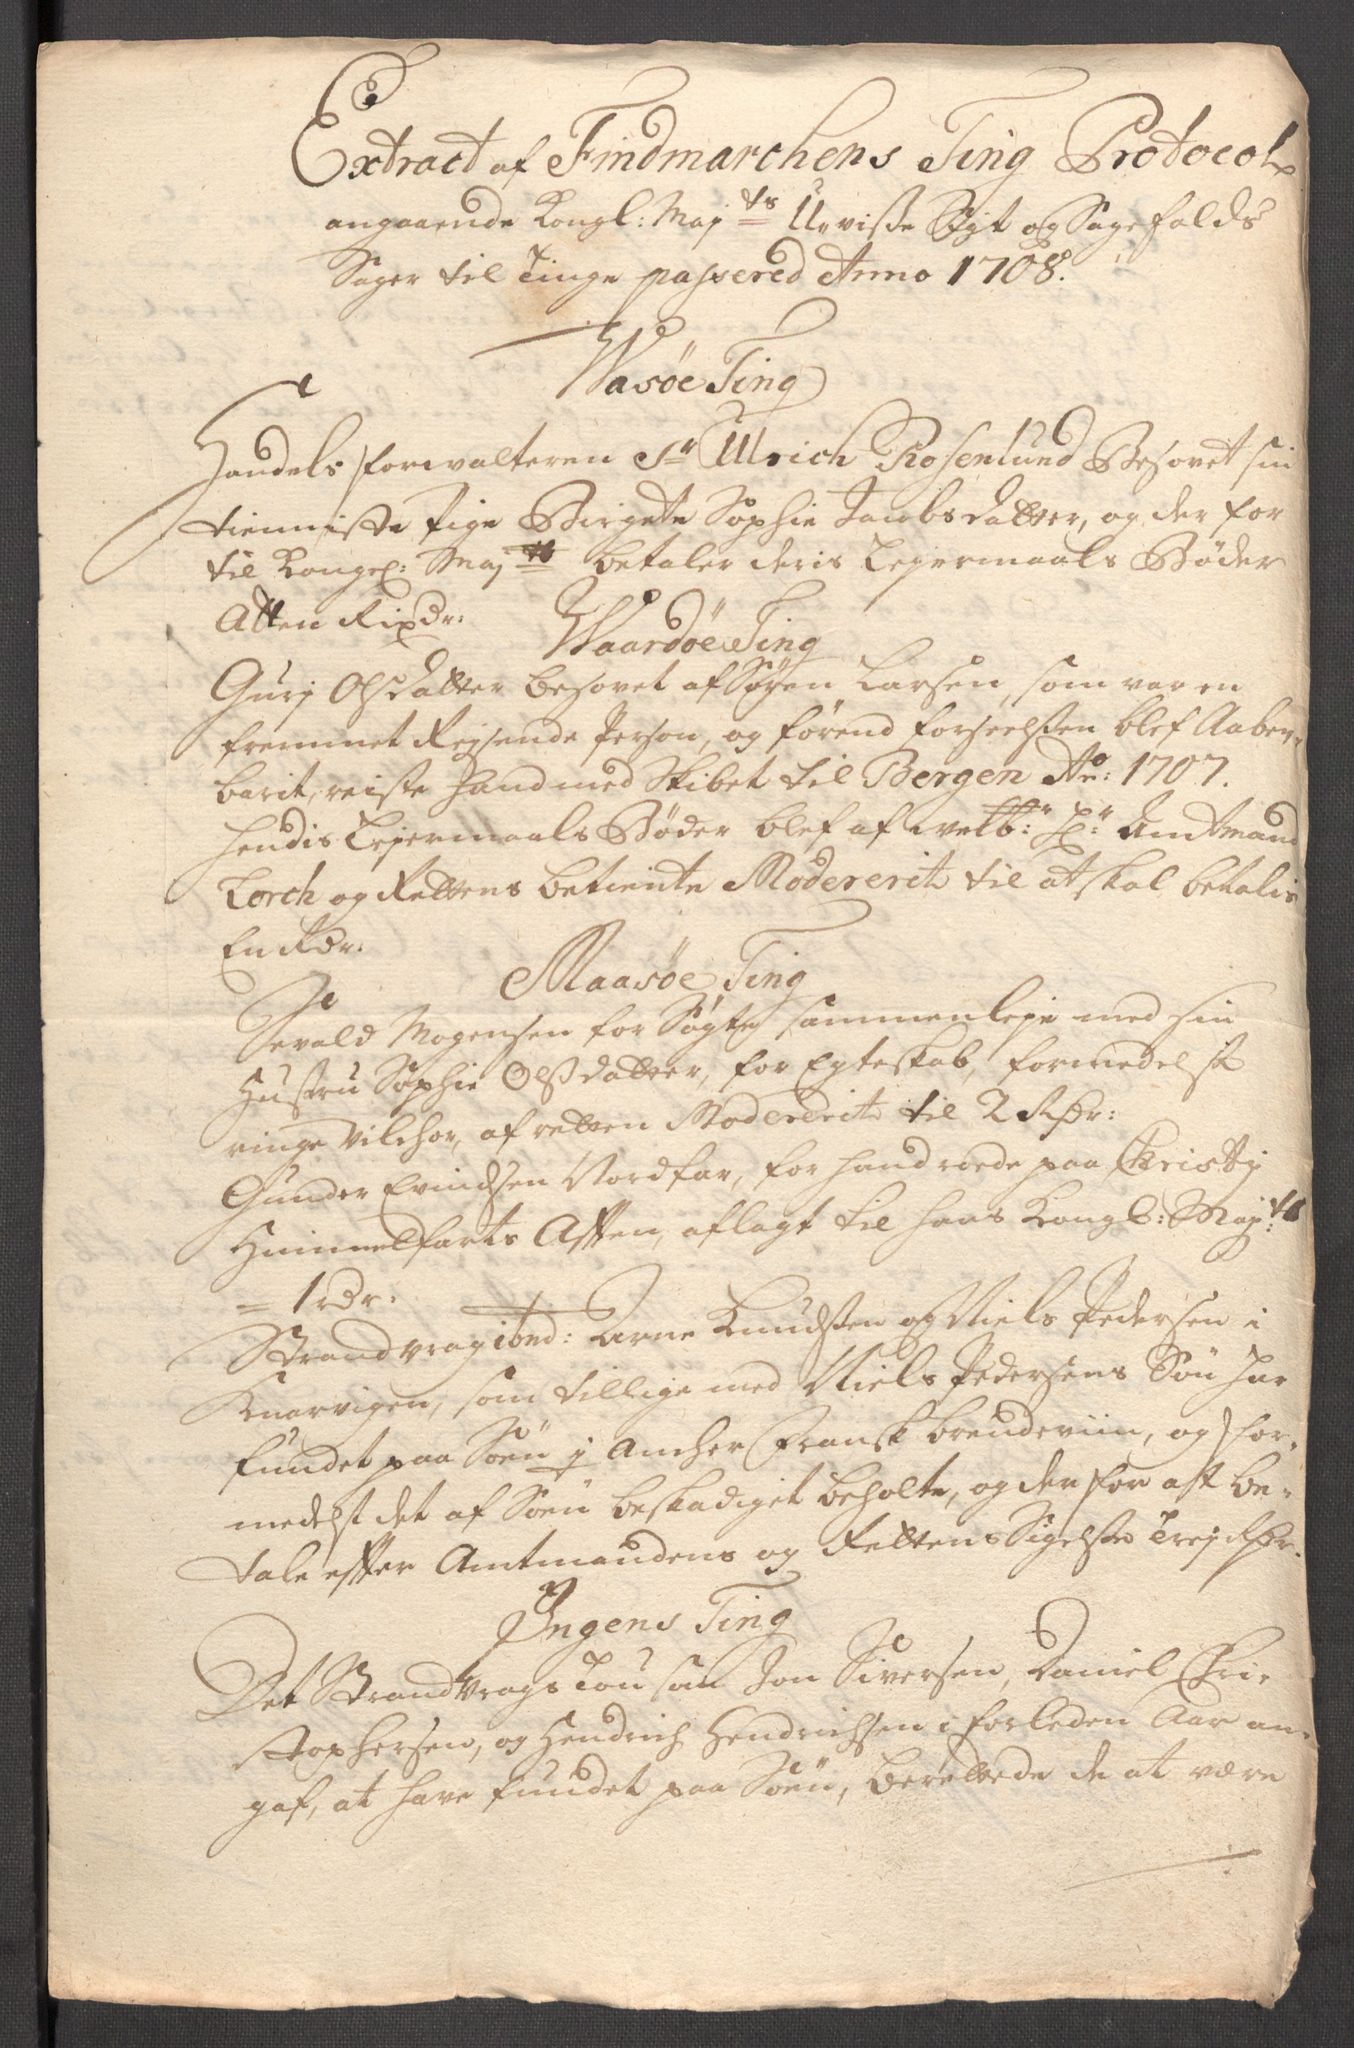 Extract af Findmarchens Ting Protocol
angaaende Kongl: Maj ts Uvisse Sigt og Sagefalds
Sager til Tinge passered Anno 1708.
Wasöe Ting
Handels forwalteren Sr Ulrich Rosenlund Besovet sin
tienniste Pige Birgete Sophie Jacobsdatter, og der for
til Kongl: Maj ts betaler deris Leyermaals Bøder
Atten Rixdr:
Waardöe Ting
Gurj Olsdatter besovet af Søren Larsen, som var en
fremmet Reysende Person, og førend forseelsen blef Aaben-
barit, reiste hand med Skibet til Bergen Ao: 1707.
hendis Leyermaals Bøder blef af welb: Hr: Amtmand
Lorch og Rettens betiente Modererit til at skal betalis
En Rdr.
Maasöe Ting
Sevald Mogensen for Søgte sammenleje med sin
Hustru Sophie Olsdatter, for Egteskab, formedelst
ringe vilchor, af retten Modererit til 2 Rdr:
Gunder Evindsen Nordfar, for hand roede paa Christj
Himmelfarts Aften, aflagt til hans Kongl: Maj ts
= 1 rdr.
Strandvrag ibnd: Arne Knudsen og Niels Pedersen i
Knarvigen, som tillige med Niels Pedersens Søn har
fundet paa Søen ½ Ancher Fransk brendeviin, og for-
medelst det af Søen beskadiget beholte, og derfor att be-
tale effter Amtmandens og Rettens Sigelse Trej Rdr.
Ingens Ting
Det Strandvrags Tou som Jon Siversen, Daniel Chri-
stophersen, og Hendrich Hendrichsen i forleden Aar an-
gaf, at have fundet paa Søen, berettede de at være